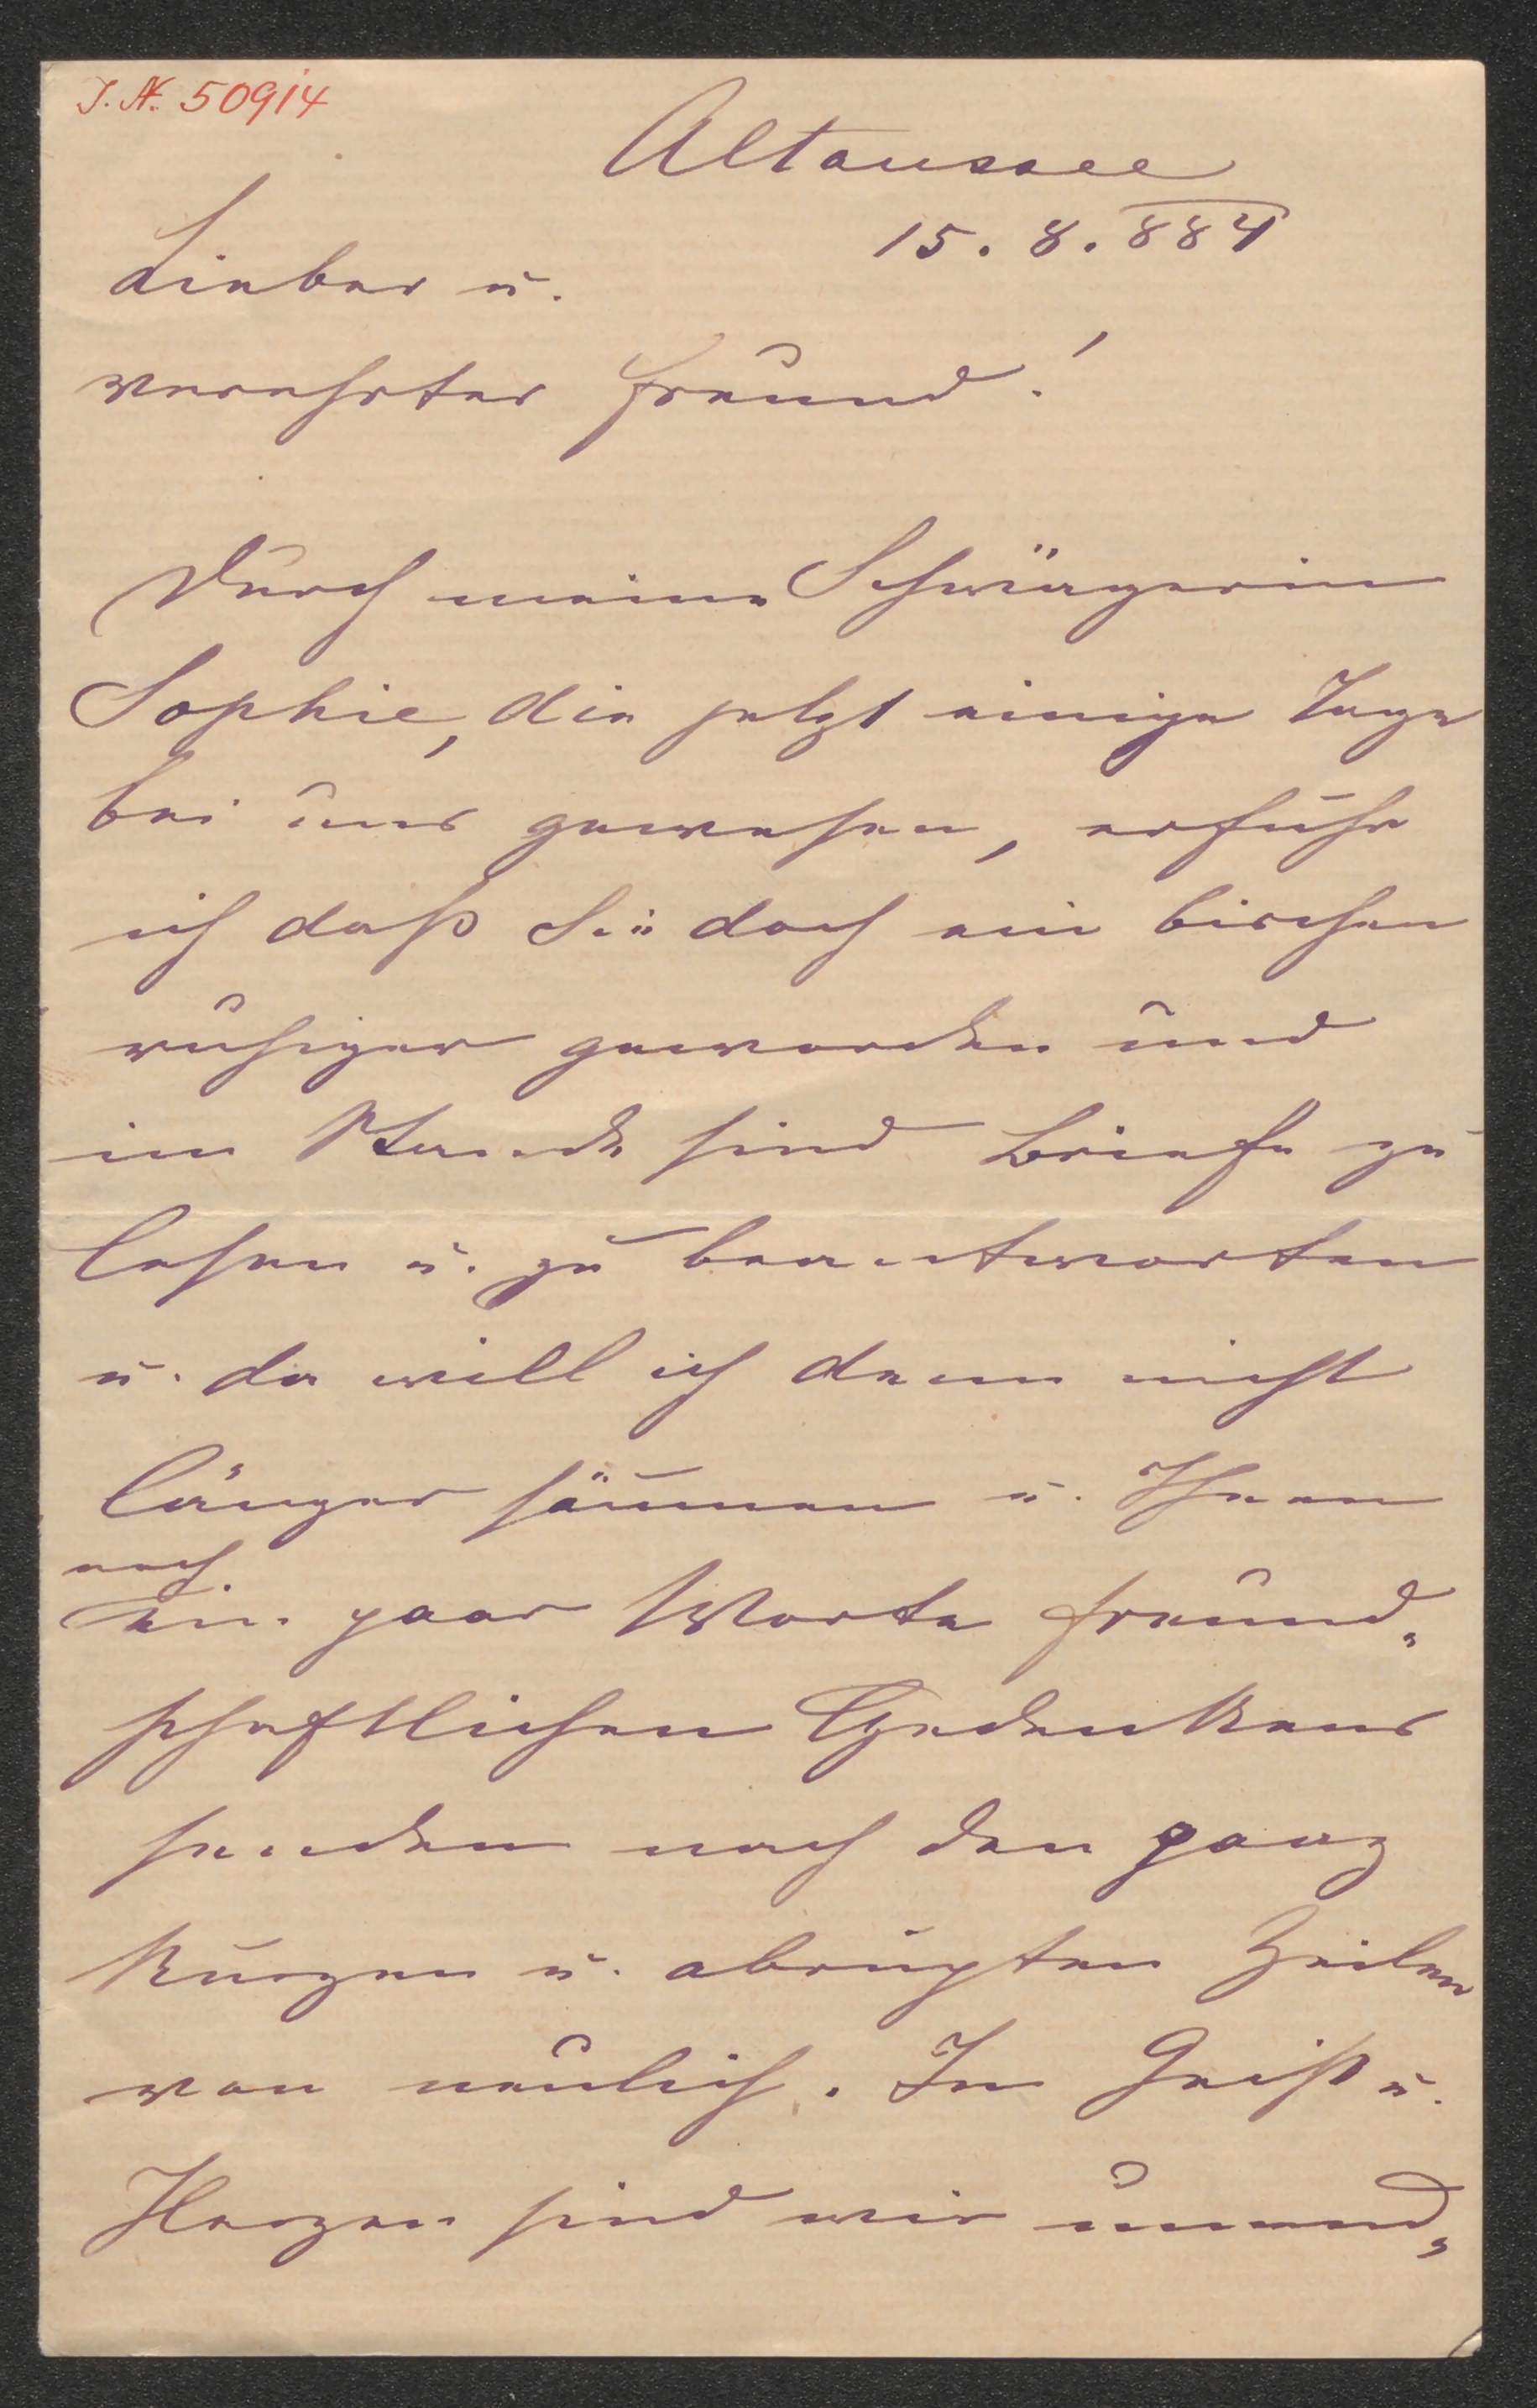 J. N. 50914
Altaussee
15. 8. 884
Lieber u.
verehrter Freund!
Durch meine Schwägerin
Sophie, die jetzt einige Tage
bei uns gewesen, erfuhr
ich daß Sie doch ein bischen
ruhiger geworden und
im Stande sind Briefe zu
lesen u. zu beantworten
u. da will ich denn nicht
länger säumen u. Ihnen
noch
ein paar Worte freund„
schaftlichen Gedenkens
senden nach den ganz
kurzen u. abrupten Zeilen
von neulich. Im Geist u.
Herzen sind wir unend„